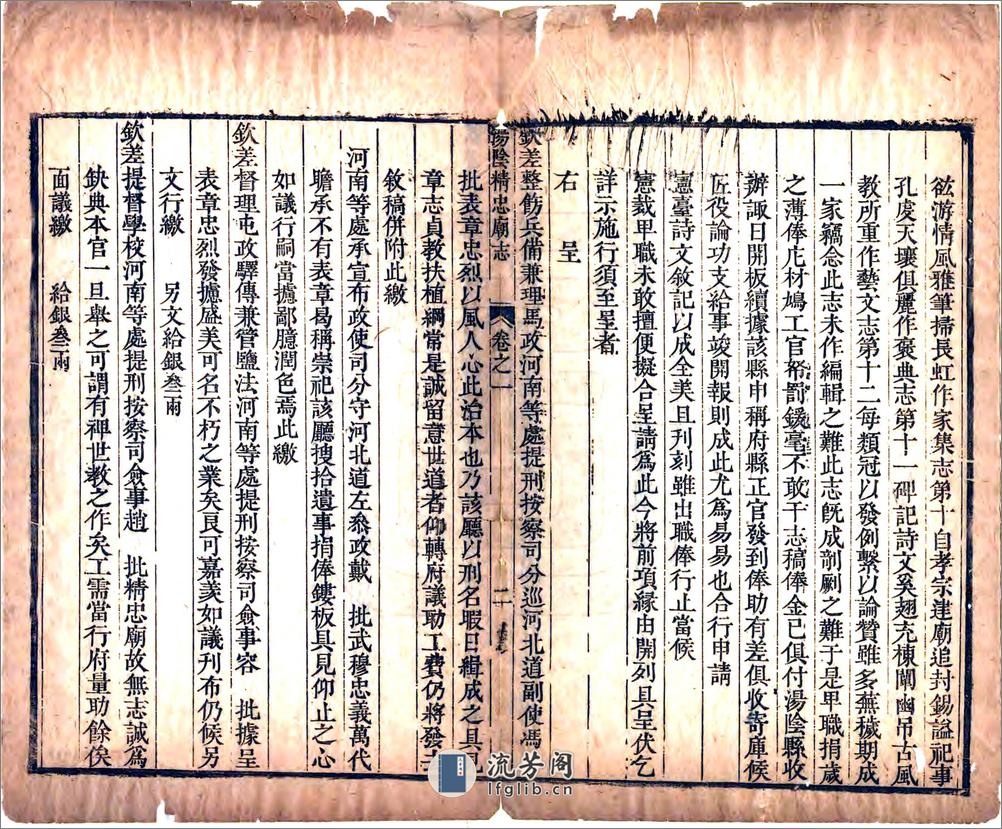 竑游情風雅筆掃長虹作家集志第十自孝宗建廟追封錫謚祀事
孔虔天壤俱麗作褒典志第十一碑記詩文奚翅充棟闡幽吊古風
教所重作藝文志第十二每類冠以發例繫以論贊雖多蕪穢期成
一家竊念此志未作編輯之難此志既成剞劂之難于是卑職捐歲
之薄俸庀材鳩工官帑罰鍰毫不敢干志稿俸金已俱付湯陰縣收
辦諏日開板續據該縣申稱府縣正官發到俸助有差俱收寄庫候
匠役論功支給事竣開報則成此尤爲易易也合行申請
憲臺詩文敘記以成全美且刊刻雖出職俸行止當候
憲裁卑職未敢擅便擬合呈請爲此今將前項緣由開列具呈伏乞
詳示施行須至呈者
右　呈
欽差整飭兵備兼理馬政河南等處提刑按察司分巡河北道副使馮
湯陰精忠廟志　卷之一　二十
批表章忠烈以風人心此治本也乃該廳以刑名暇日緝成之具見
章志貞教扶植綱常是誠留意世道者仰轉府議助工費仍將發去
敘稿併附此繳
河南等處承宣布政使司分守河北道左叅政戴　批武穆忠義萬代
瞻承不有表章曷稱崇祀該廳搜拾遺事捐俸鏤板具見仰止之心
如議行嗣當攄鄙臆潤色焉此繳
欽差督理屯政驛傳兼管鹽法河南等處提刑按察司僉事容　批據呈
表章忠烈發攄盛美可名不朽之業矣良可嘉羡如議刊布仍候另
文行繳　另文給銀叁兩
欽差提督學校河南等處提刑按察司僉事趙　批精忠廟故無志誠爲
缺典本官一旦舉之可謂有裨世教之作矣工需當行府量助餘俟
面議繳　給銀叁兩
流芳阁
lfglib.cn